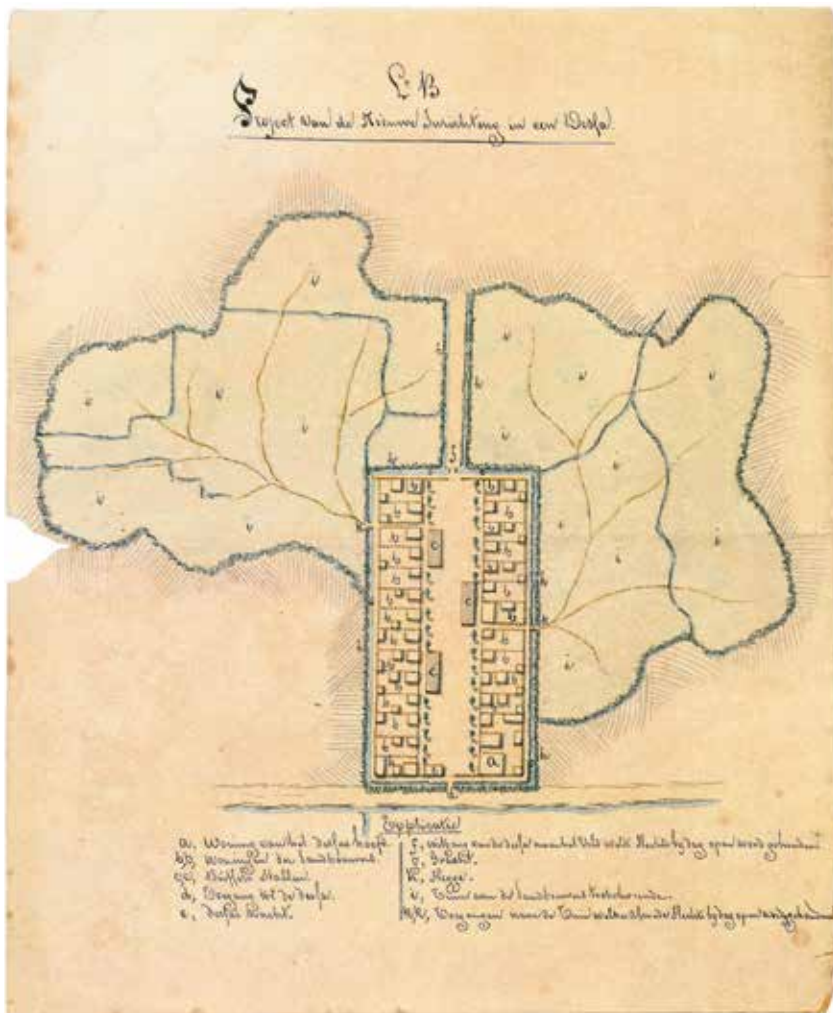 La B
Project van de Nieuwe Inrichting in een Dessa.
Explicatie
a, Woning van het dessas hoofd.
b,b, Woningen der landbouwers
c,c, Buffels Stallen.
d, Toegang tot de dessa.
e, Dessas Wacht.
f, uitgang van de dessa naar het Veld welk Slechts bij dag open word gehouden
g, Gracht.
h, Hegge.
i, Tuin aan de landbouwers toebehoorende.
k,k, Toegangen naar de Tuin welke Slechts bij dag open word gehouden